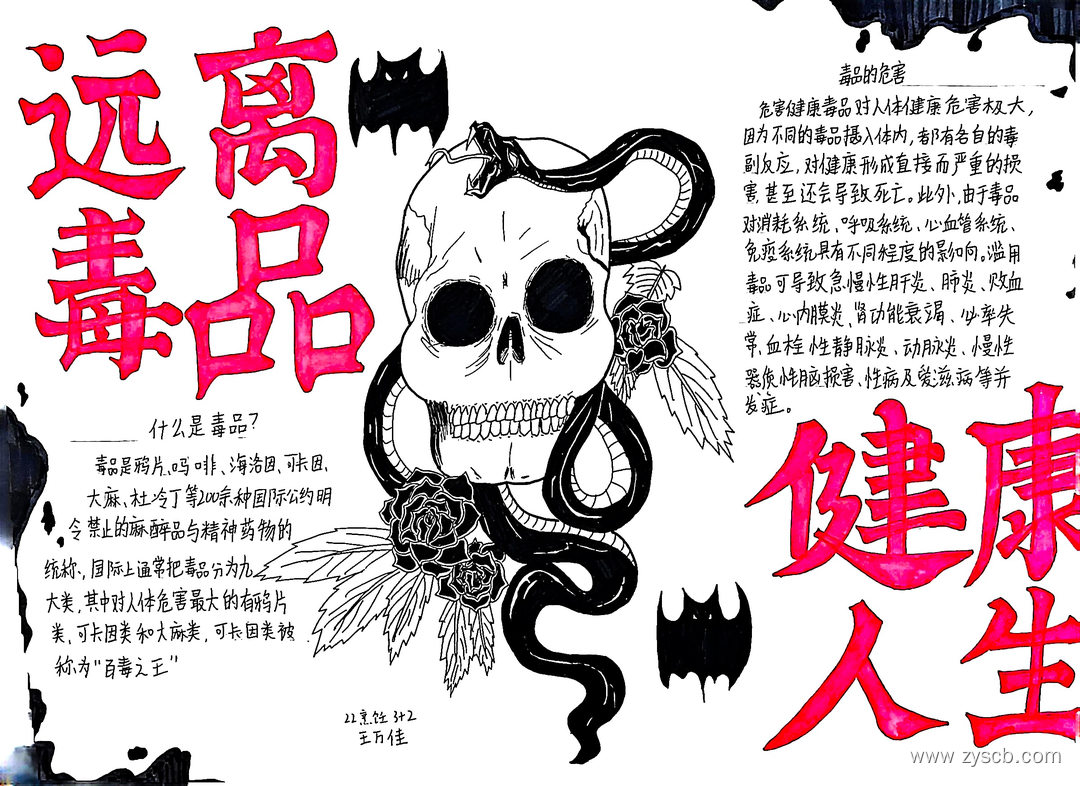 远离
毒品
什么是毒品？
毒品是鸦片、吗啡、海洛因、可卡因、
大麻、杜冷丁等200余种国际公约明
令禁止的麻醉品与精神药物的
统称、国际上通常把毒品分为九
大类，其中对人体危害最大的有鸦片
类、可卡因类和大麻类，可卡因类被
称为“百毒之王”
22烹饪3+2
王万佳
毒品的危害
危害健康毒品对人体健康危害极大，
因为不同的毒品摄入体内，都有各自的毒
副反应，对健康形成直接而严重的损
害，甚至还会导致死亡。此外，由于毒品
对消耗系统、呼吸系统、心血管系统、
免疫系统具有不同程度的影响。滥用
毒品可导致急慢性肝炎、肺炎、败血
症、心内膜炎、肾功能衰竭、心率失
常、血栓性静脉炎、动脉炎、慢性
器质性脑损害、性病及爱滋病等并
发症。
健康
人生
www.zyscb.com